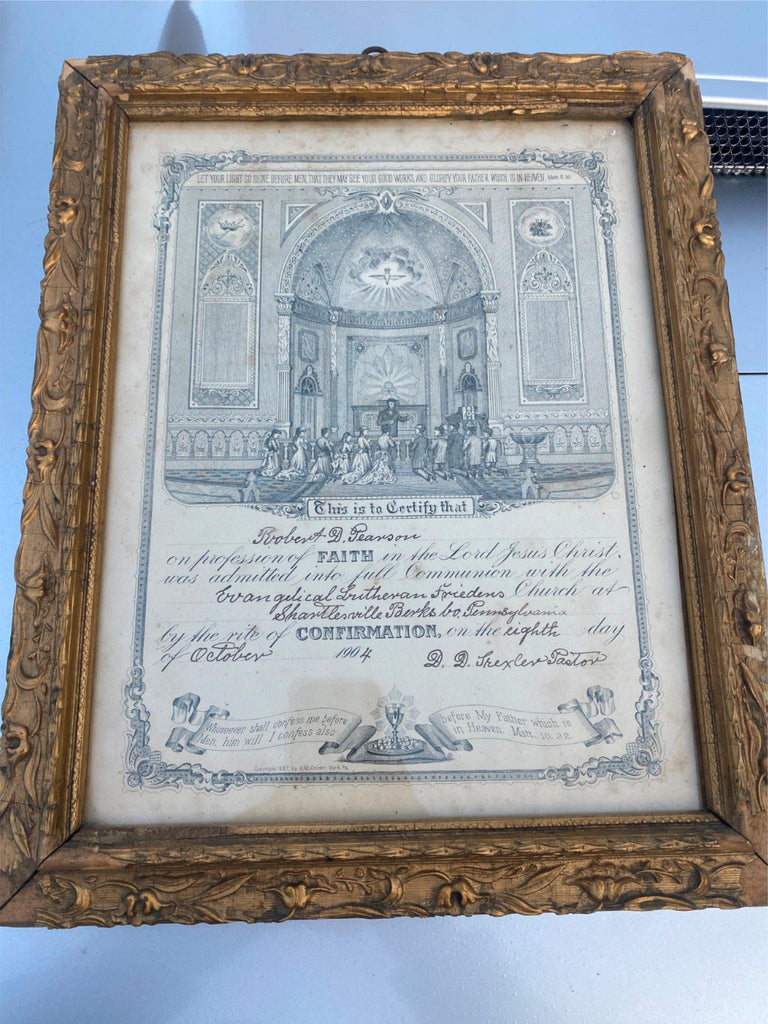 LET YOUR LIGHT SO SHINE BEFORE MEN, THAT THEY MAY SEE YOUR GOOD WORKS, AND GLORIFY YOUR FATHER WHICH IS IN HEAVEN
This is to Certify that
Robert D. Pearson
on profession of FAITH in the Lord Jesus Christ,
was admitted into full Communion with the
Evangelical Lutheran Friedens Church at
Shartlesville Berks Co, Pennsylvania
by the rite of CONFIRMATION, on the eighth day
of October 1904 D. D. Trexler Pastor
Whosoever shall confess me before
Men, him will I confess also
before My Father which is
in Heaven. Matt. 10. 32.
Copyright 1887 by York, Pa.